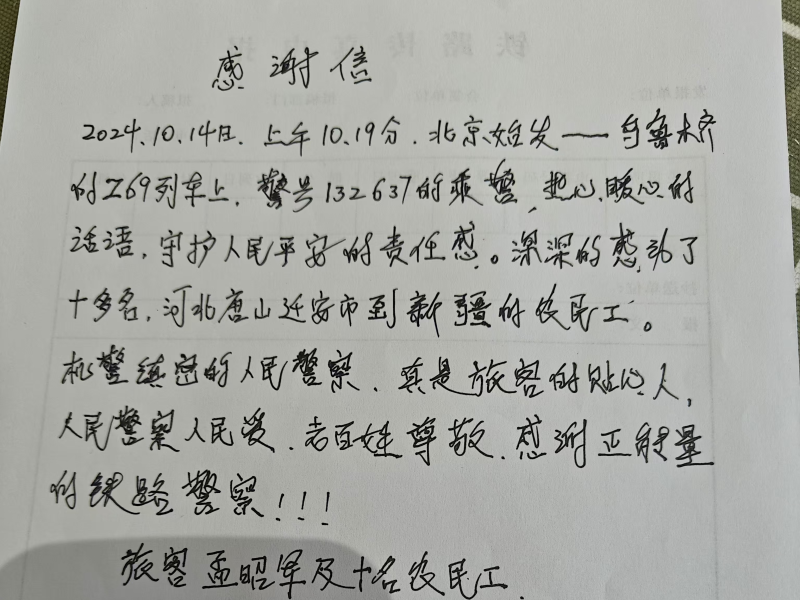 感谢信
2024.10.14日.上午10.19分.北京始发——乌鲁木齐
的Z69列车上.警号132637的乘警,热心.暖心的
话语,守护人民平安的责任感。深深的感动了
十多名,河北唐山迁安市到新疆的农民工。
机警缜密的人民警察.真是旅客的贴心人,
人民警察人民爱.老百姓尊敬.感谢正能量
的铁路警察!!!
旅客孟昭军及十名农民工.